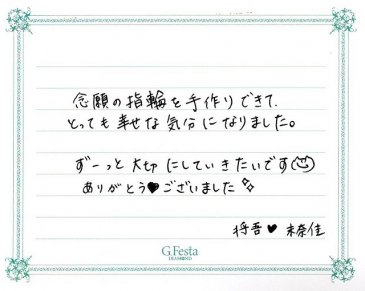 念願の指輪を手作りできて、
とっても幸せな気分になりました。
ずーっと大切にしていきたいです
ありがとう♥ございました
将吾 ♥ 未奈佳
G.Festa
DIAMOND